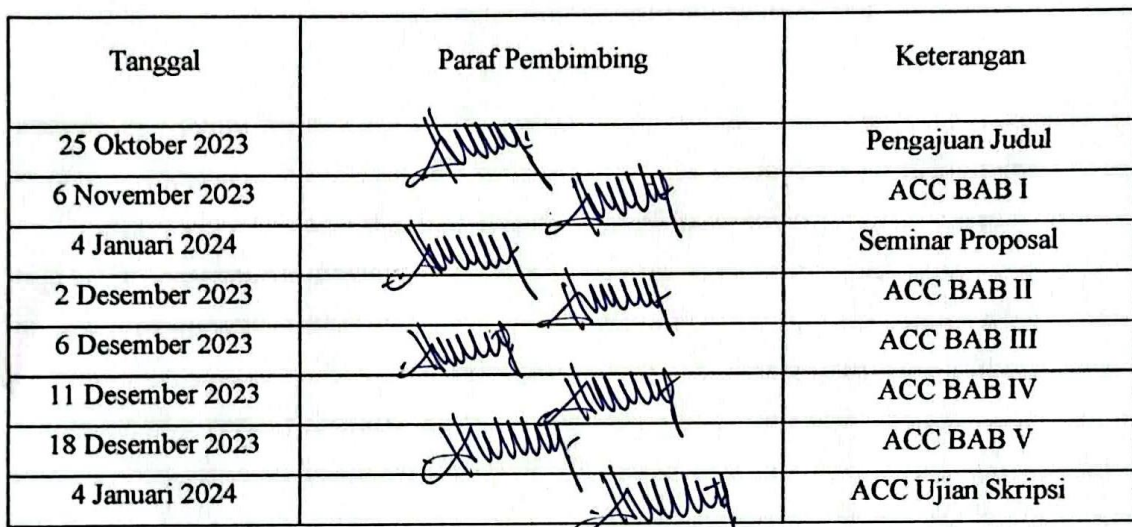 Tanggal Paraf Pembimbing Keterangan
25 Oktober 2023 Pengajuan Judul
6 November 2023 ACC BAB I
4 Januari 2024 Seminar Proposal
2 Desember 2023 ACC BAB II
6 Desember 2023 ACC BAB III
11 Desember 2023 ACC BAB IV
18 Desember 2023 ACC BAB V
4 Januari 2024 ACC Ujian Skripsi